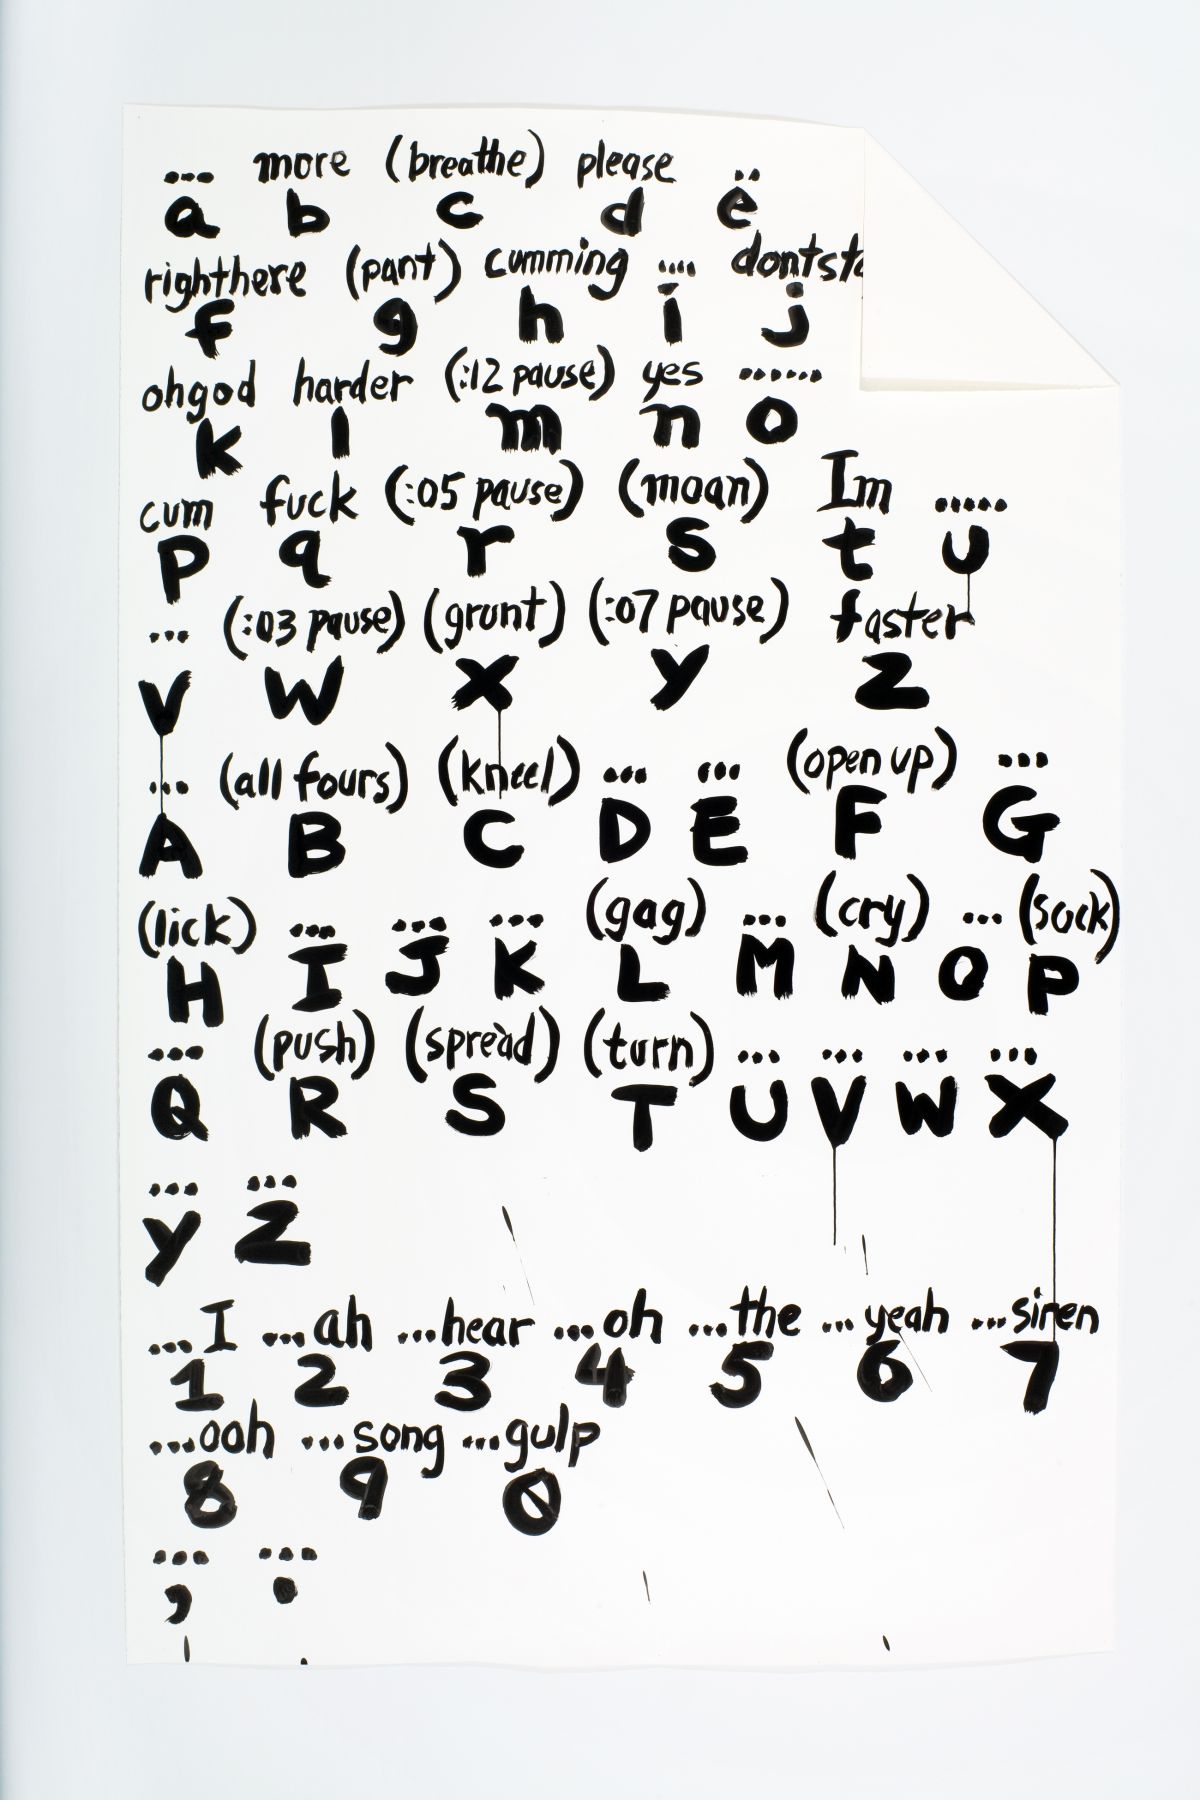 ... more (breathe) please ..
a b c d e
righthere (pant) cumming .... dontsto
f g h i j
ohgod harder (:12 pause) yes ......
k l m n o
cum fuck (:05 pause) (moan) Im .....
p q r s t u
... (:03 pause) (grunt) (:07 pause) faster
v w x y z
... (all fours) (kneel) ... ... (open up) ...
A B C D E F G
(lick) ... ... ... (gag) ... (cry) ... (suck)
H I J K L M N O P
... (push) (spread) (turn) ... ... ... ...
Q R S T U V W X
... ...
Y Z
...I ...ah ...hear ...oh ...the ...yeah ...siren
1 2 3 4 5 6 7
...ooh ...song ...gulp
8 9 0
... ...
, .